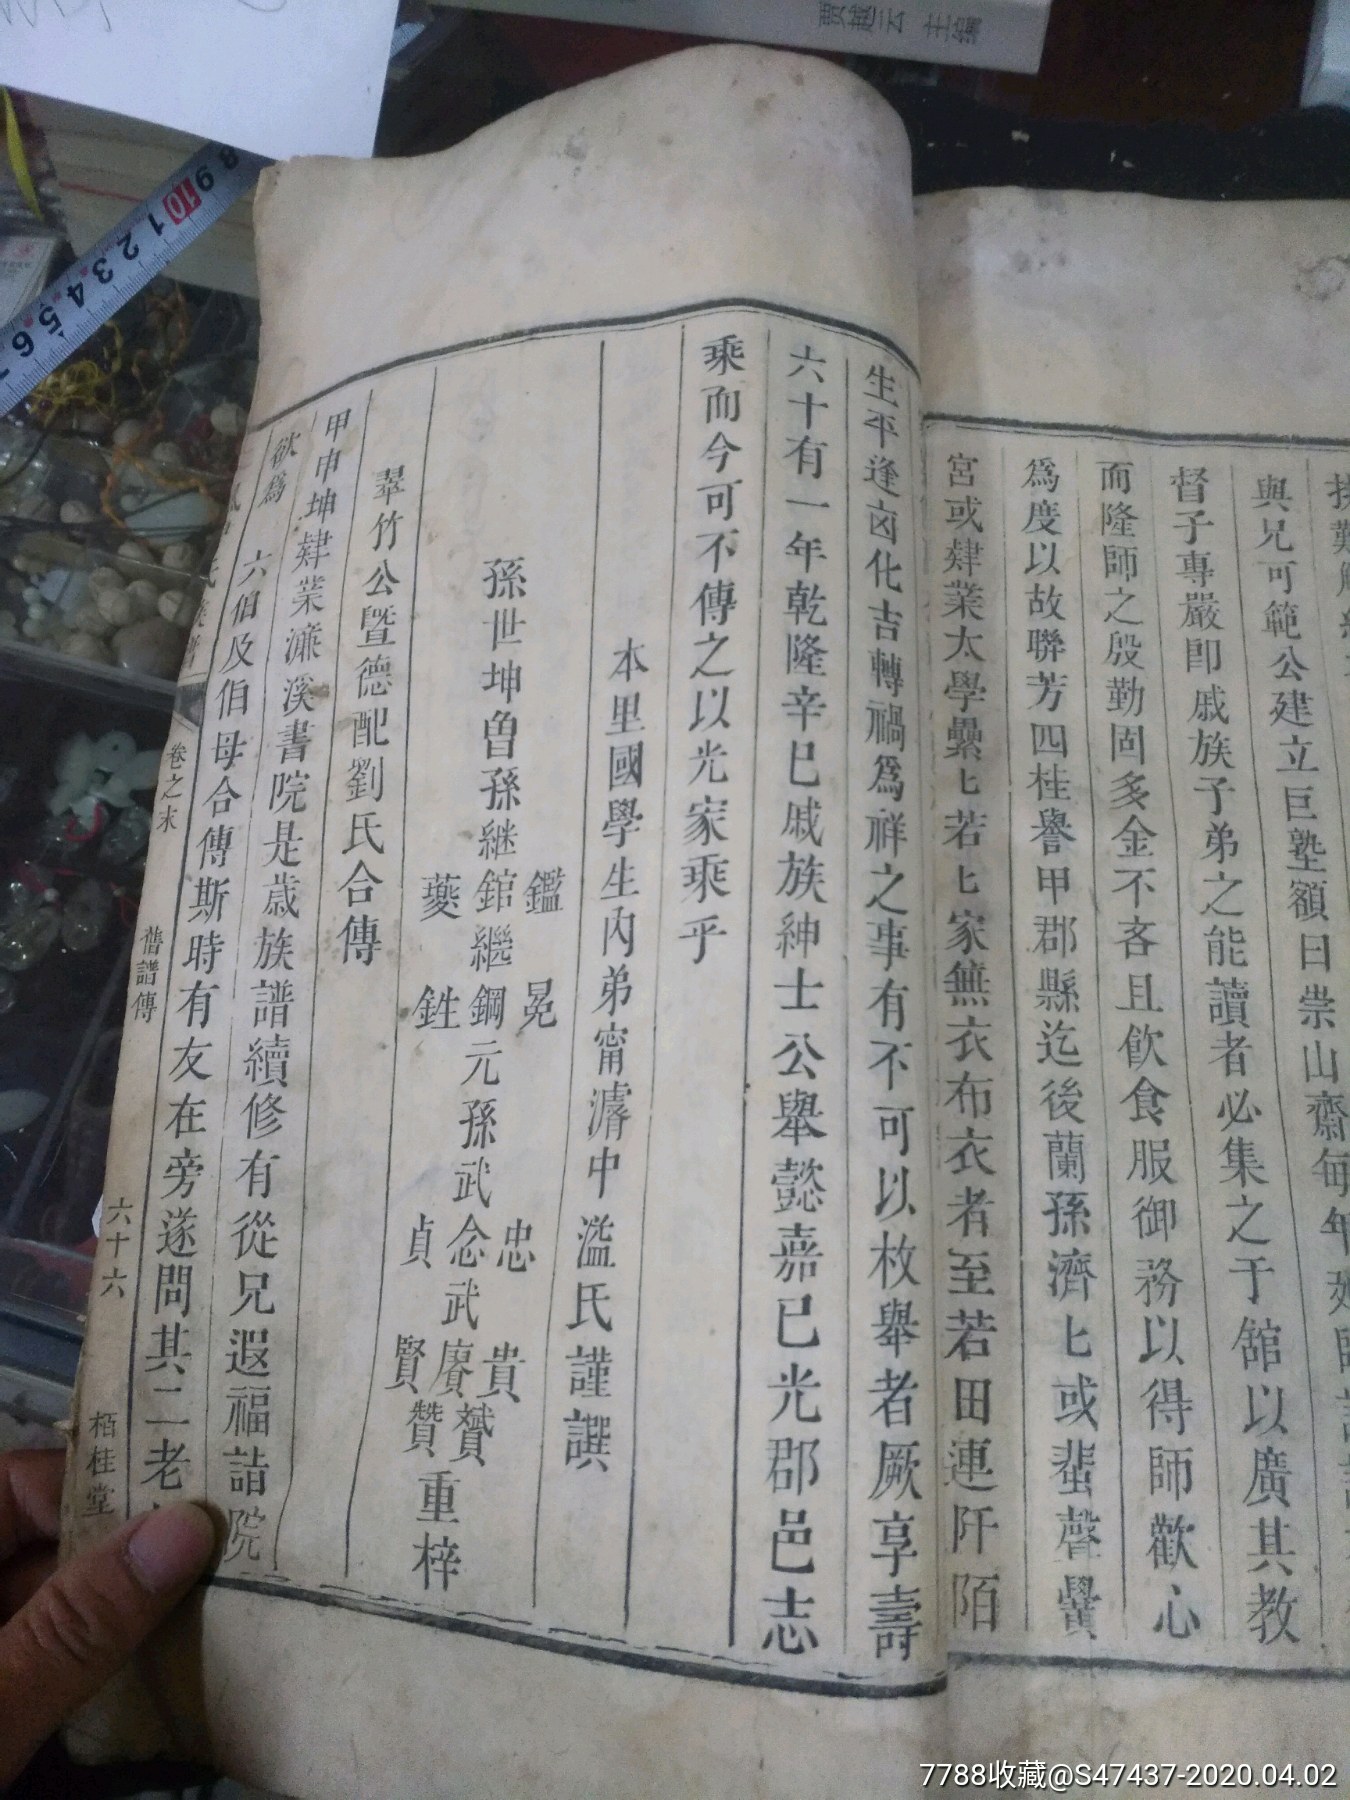 賈越云 主編
與兄可範公建立巨塾額曰崇山齋每年
督子專嚴卽戚族子弟之能讀者必集之于舘以廣其教
而隆師之殷勤固多金不吝且飲食服御務以得師歡心
爲度以故聯芳四桂譽甲郡縣迄後蘭孫濟匕或蜚聲黌
宮或肄業太學纍匕若匕家無衣布衣者至若田連阡陌
生平逢凶化吉轉禍爲祥之事有不可以枚舉者厥享壽
六十有一年乾隆辛巳戚族紳士公舉懿嘉已光郡邑志
乘而今可不傳之以光家乘乎
本里國學生內弟甯濬中溢氏謹譔
孫世坤曾孫継鑑錧夔繼冕鋼銈元孫武忠念貞武貴賡賢贇贊重梓
翠竹公暨德配劉氏合傳
甲申坤肄業濂溪書院是歲族譜續修有從兄遐福詰院
欲爲 六伯及伯母合傳斯時有友在旁遂問其二老
卷之末 舊譜傳 六十六 栢桂堂
8 9 10 1 2 3 4 5 6 7
7788收藏@S47437-2020.04.02